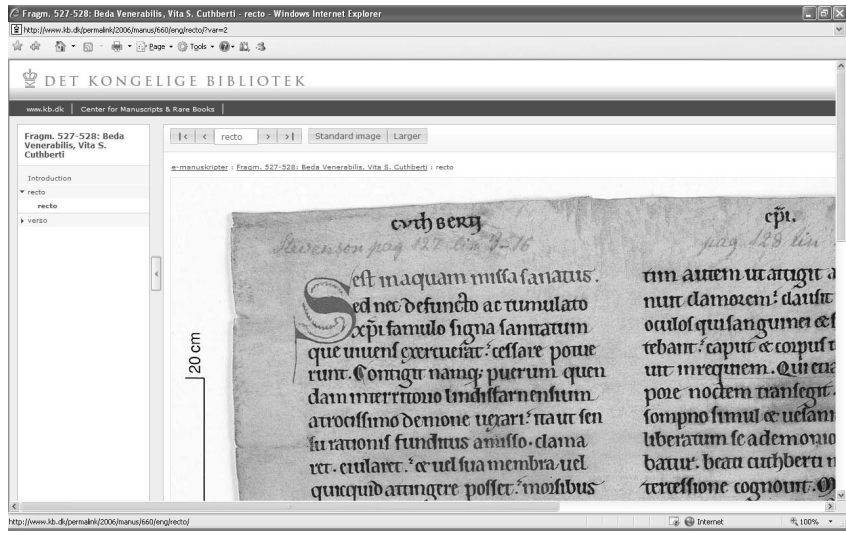 Fragm. 527-528: Beda Venerabilis, Vita S. Cuthberti - recto - Windows Internet Explorer
http://www.kb.dk/permalink/2006/manus/660/eng/recto/?var=2
Page Tools
DET KONGELIGE BIBLIOTEK
www.kb.dk | Center for Manuscripts & Rare Books |
Fragm. 527-528: Beda
Venerabilis, Vita S.
Cuthberti
Introduction
recto
recto
verso
|< < recto > >| Standard image Larger
e-manuskripter : Fragm. 527-528: Beda Venerabilis, Vita S. Cuthberti : recto
20 cm
cuthberti
Stevenson pag 127 lin 3-16
est in aquam missa sanatus.
Sed nec defuncto ac tumulato
xp̅i famulo signa sanitatum
que uiuens exercuerat: cessare potue
runt. Contigit namq; puerum quen
dam in territorio lindisfarnensium
atrocissimo demone uexari: ita ut sen
su rationis funditus amisso. clama
ret. eiularet. & uel sua membra uel
quicquid attingere posset: morsibus
ep̅i.
pag 128 lin
tim autem ut attigit a
nuit clamorem: clausit
oculos qui sanguinei & f
tebant: caput & corpus r
uit in requiem. Qui etia
pore noctem transegit.
sompno simul & uesani
liberatum se a demonio
batur. beati cuthberti m
tercessione cognouit. M
http://www.kb.dk/permalink/2006/manus/660/eng/recto/
Internet
100%